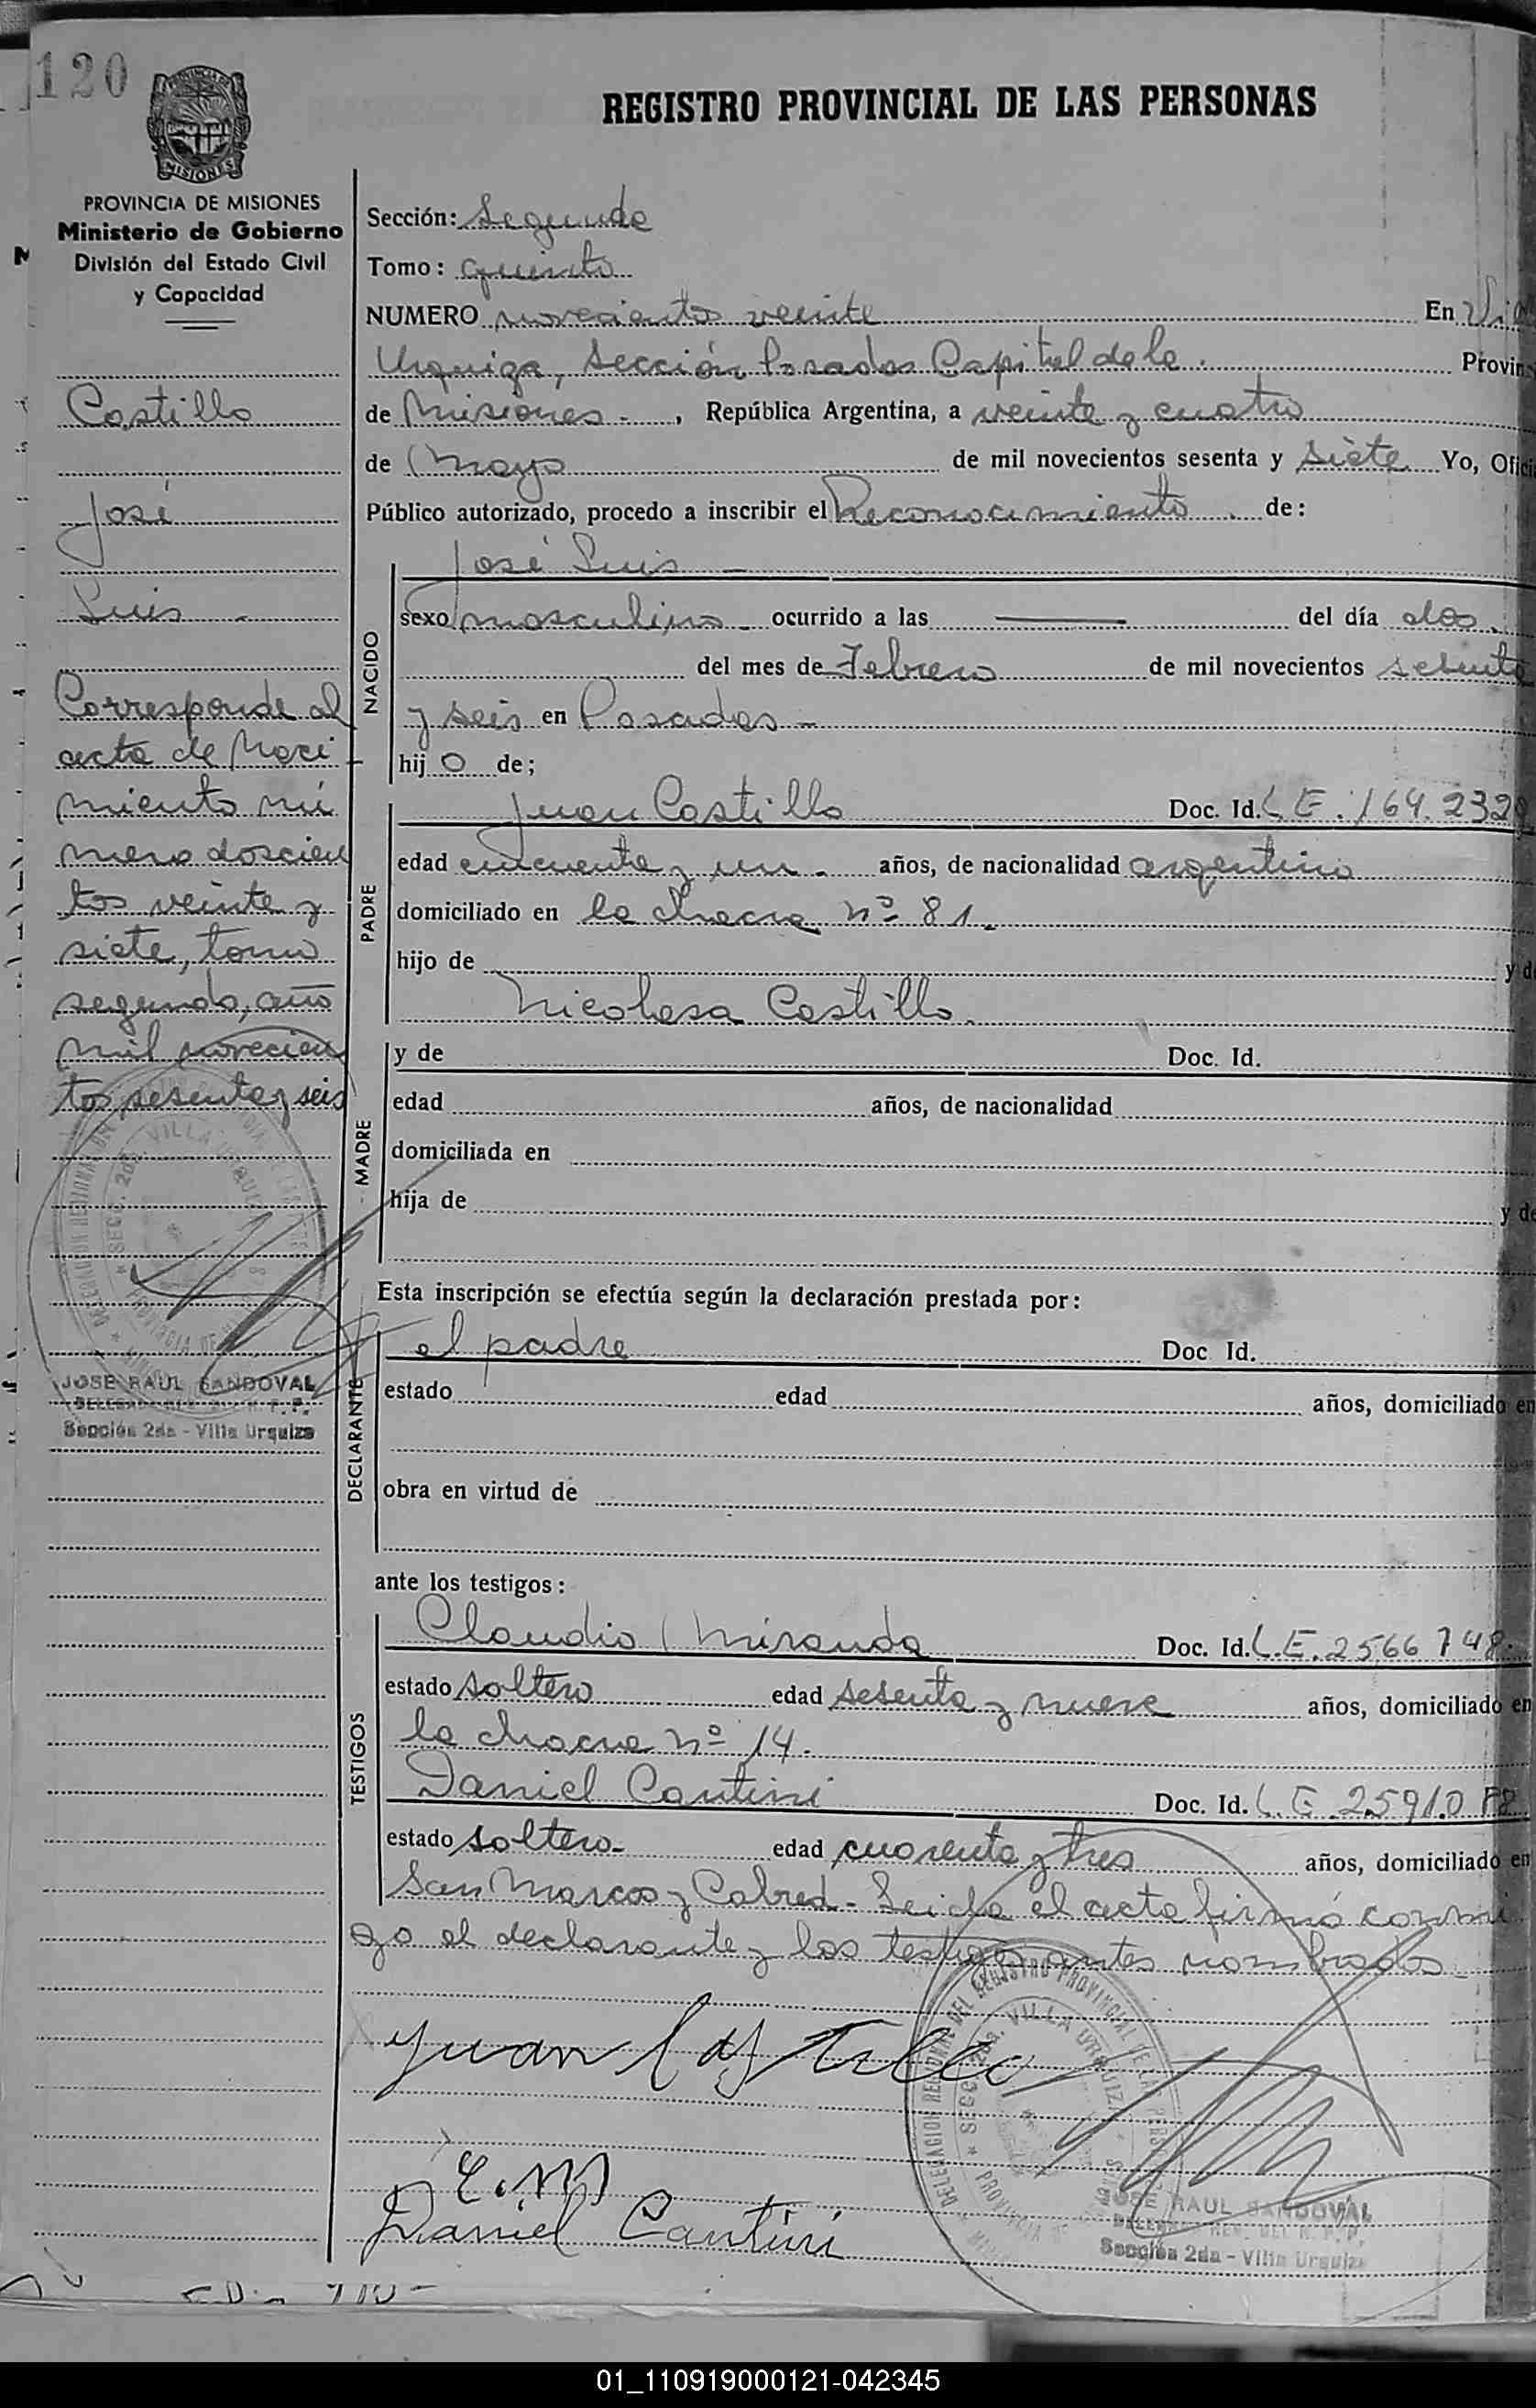 120
REGISTRO PROVINCIAL DE LAS PERSONAS
PROVINCIA DE MISIONES
Ministerio de Gobierno
División del Estado Civil
y Capacidad
Castillo
José
Luis
Corresponde al
acta de Naci
miento nú
mero doscien
tos veinte y
siete, tomo
segundo, año
mil novecien
tos sesenta y seis
JOSE RAUL SANDOVAL
Sección 2da - Villa Urquiza
Sección: Segunda
Tomo: quinto
NUMERO novecientos veinte En
Urquiza, Sección Posadas Capital de la Provin
de Misiones, República Argentina, a veinte y cuatro
de Mayo de mil novecientos sesenta y siete Yo, Ofici
Público autorizado, procedo a inscribir el Reconocimiento de:
José Luis
NACIDO
sexo masculino ocurrido a las del día dos
del mes de Febrero de mil novecientos sesenta
y seis en Posadas
hijo de;
PADRE
Juan Castillo Doc. Id. L.E. 164.232
edad cincuenta y un años, de nacionalidad argentino
domiciliado en la chacra nº 81
hijo de y de
Nicolasa Castillo
MADRE
y de Doc. Id.
edad años, de nacionalidad
domiciliada en
hija de y de
Esta inscripción se efectúa según la declaración prestada por:
DECLARANTE
el padre Doc Id.
estado edad años, domiciliado en
obra en virtud de
ante los testigos:
TESTIGOS
Claudio Miranda Doc. Id. L.E. 2566748.
estado soltero edad sesenta y nueve años, domiciliado en
la chacra nº 14.
Daniel Cantini Doc. Id. L.E. 2.591.0
estado soltero edad cuarenta y tres años, domiciliado en
San Marcos y Cabred - Leida el acta firmó conmi
go el declarante y los testigos antes nombrados
Juan Castillo
C.M
Daniel Cantini
JOSE RAUL SANDOVAL
Sección 2da - Villa Urquiza
01_110919000121-042345